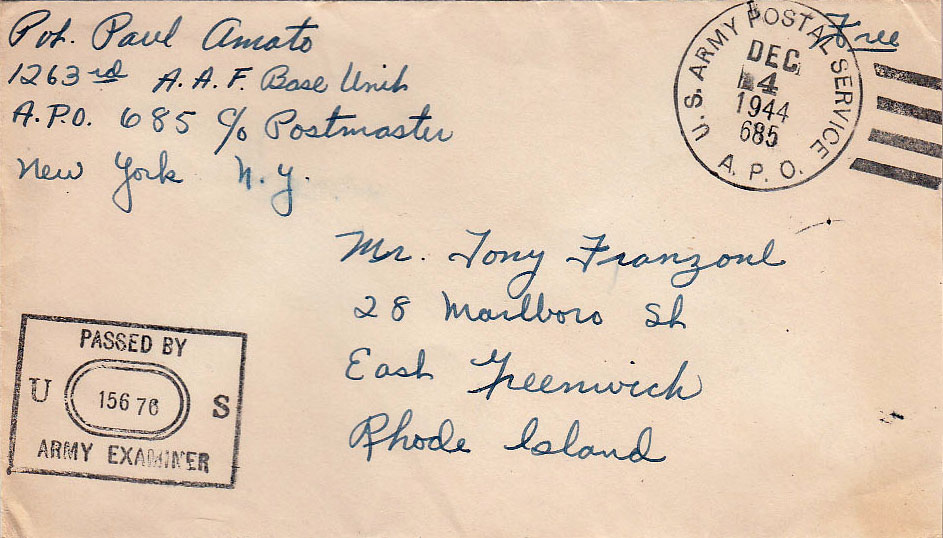 Pvt. Paul Amato
1263rd A.A.F. Base Unit
A.P.O. 685 c/o Postmaster
New York N.Y.
Free
U.S. ARMY POSTAL SERVICE
DEC
4
1944
685
A.P.O.
Mr. Tony Franzone
28 Marlboro St
East Greenwich
Rhode Island
PASSED BY
U 15676 S
ARMY EXAMINER